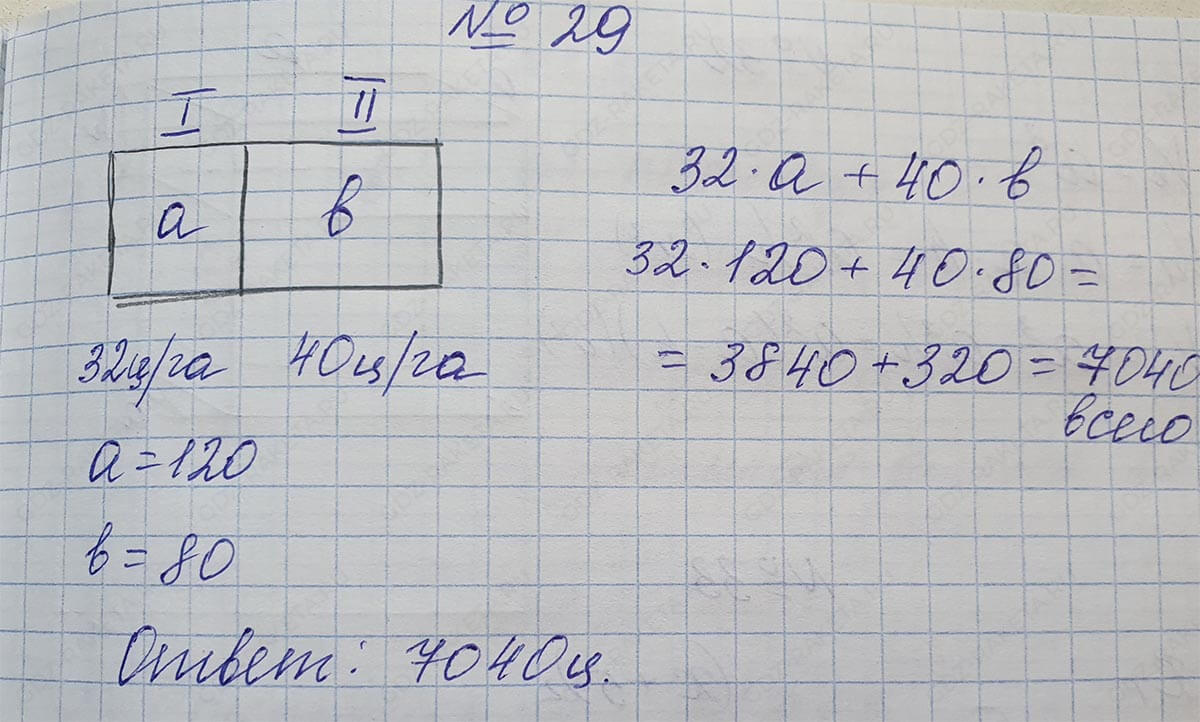 № 29
I II
a в
32ц/га 40ц/га
a = 120
в = 80
32 · a + 40 · в
32 · 120 + 40 · 80 =
= 3840 + 320 = 7040
всего
Ответ: 7040ц.